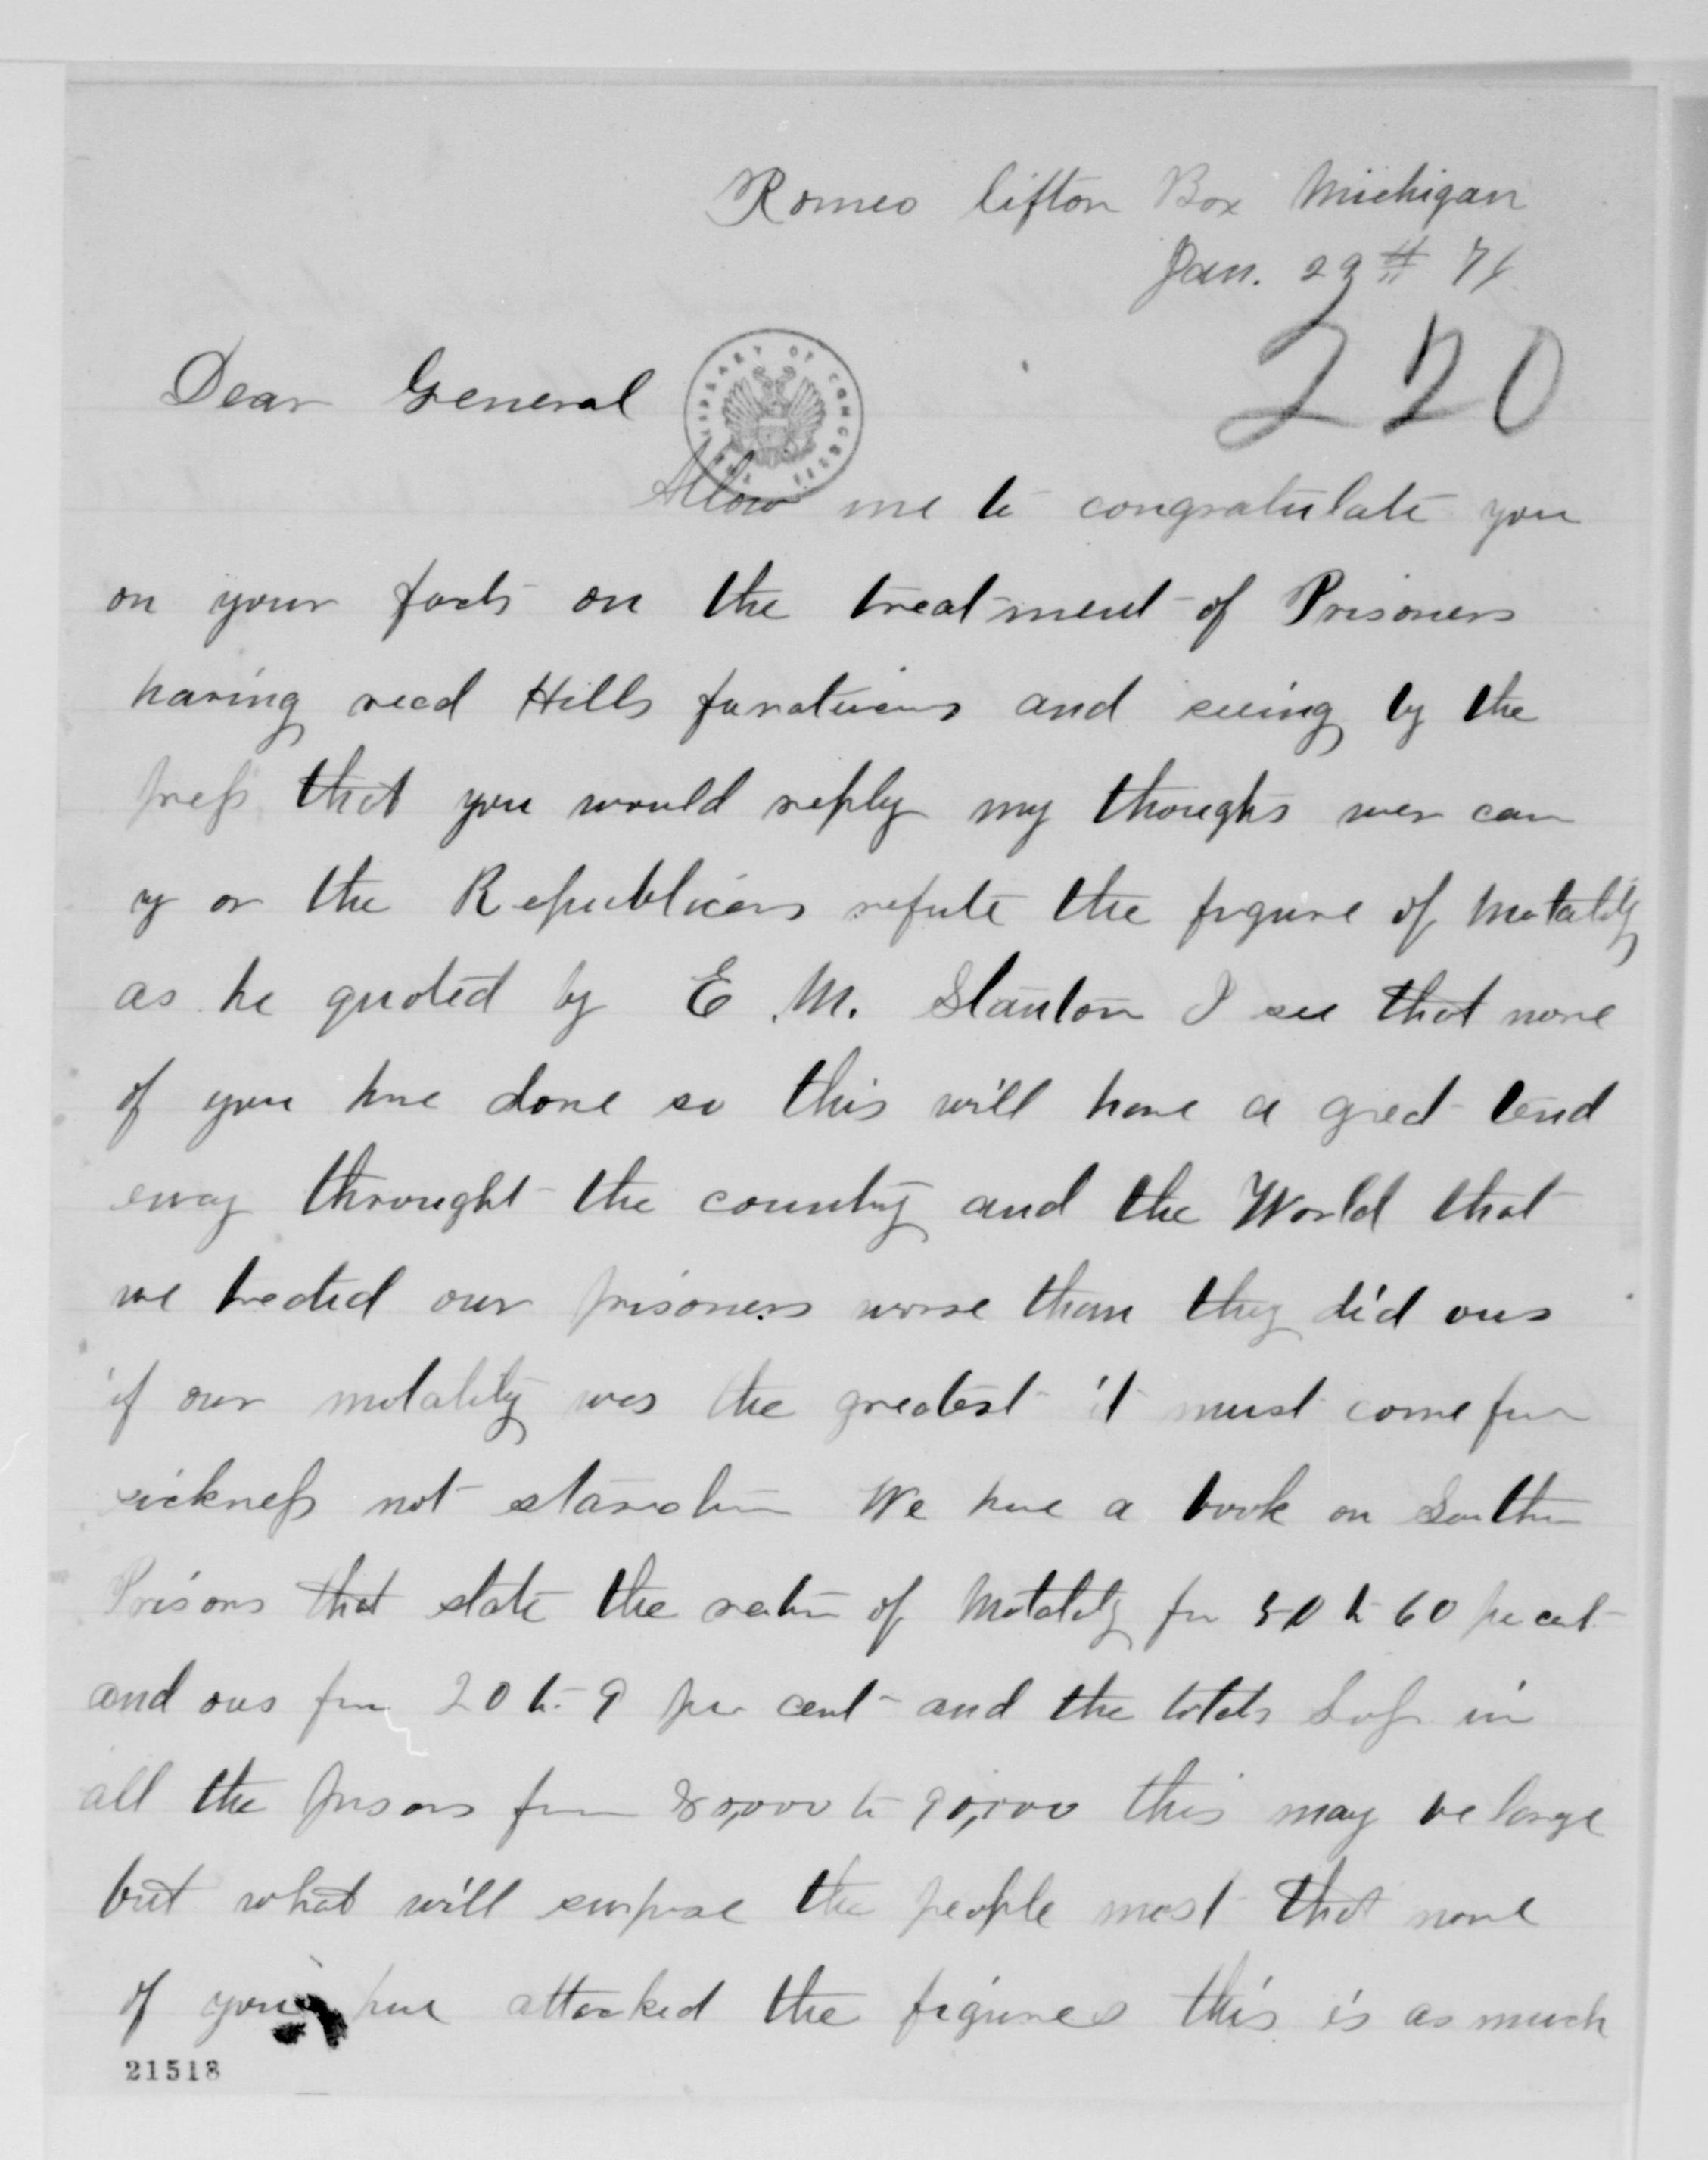 Romeo lifton Box Michigan
Jan. 29th 76
220
Dear General
LIBRARY OF CONGRESS
Allow me to congratulate you
on your facts on the treatment of Prisoners
having read Hills and seeing by the
press that you would reply my thoughts wer can
y or the Republicans refute the figure of Motality
as he quoted by E. M. Stanton I see that none
of you have done so this will have a gred tend
ency throught the country and the World that
we treated our prisoners worse than they did ous
if our motality was the greatest it must come from
sickness not starvation We have a book on Southern
Prisons that state the ratio of Motality from 50 to 60 per cent
and ous from 20 to 9 per cent and the totals loss in
all the prisons from 80,000 to 90,000 this may be large
but what will surprise the people most that none
of you have attacked the figures this is as much
21518